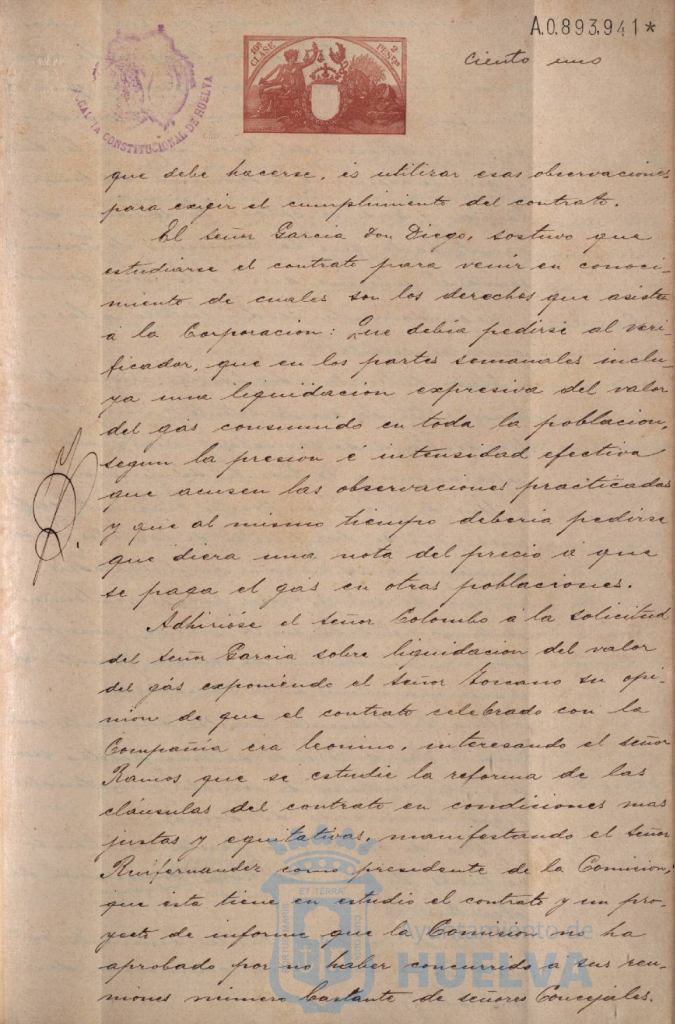 A.0.893.941*
ciento uno
10ª CLASE
2 PESETAS
ALCALDIA CONSTITUCIONAL DE HUELVA
que debe hacerse, es utilizar esas observaciones
para exigir el cumplimiento del contrato.
El señor Garcia Don Diego, sostuvo que
estudiarse el contrato para venir en conoci-
miento de cuales son los derechos que asisten
á la Corporacion: Que debia pedirse al veri-
ficador, que en los partes semanales inclu-
ya una liquidacion expresiva del valor
del gás consumido en toda la poblacion,
segun la presion é intensidad efectiva
que acusen las observaciones practicadas
y que al mismo tiempo deberia pedirse
que diera una nota del precio á que
se paga el gás en otras poblaciones.
Adhirióse el señor Colombo á la solicitud
del señor Garcia sobre liquidacion del valor
del gás exponiendo el señor Toscano su opi-
nion de que el contrato celebrado con la
Compañia era leonino, interesando el señor
Ramos que se estudie la reforma de las
cláusulas del contrato en condiciones mas
justas y equitativas, manifestando el señor
Ruifernandez como presidente de la Comision,
que esta tiene en estudio el contrato y un pro-
yecto de informe que la Comision no ha
aprobado por no haber concurrido a sus reu-
niones número bastante de señores Concejales.
Ayuntamiento de
HUELVA